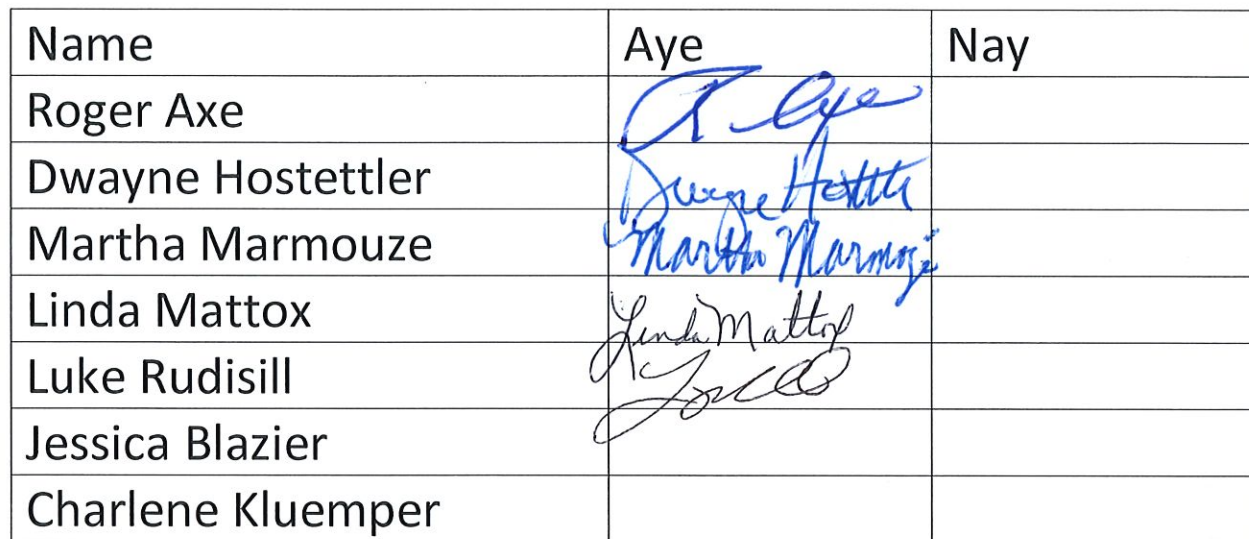 Name Aye Nay
Roger Axe R Axe
Dwayne Hostettler Dwayne Hostttr
Martha Marmouze Martha Marmouze
Linda Mattox Linda Mattox
Luke Rudisill
Jessica Blazier
Charlene Kluemper